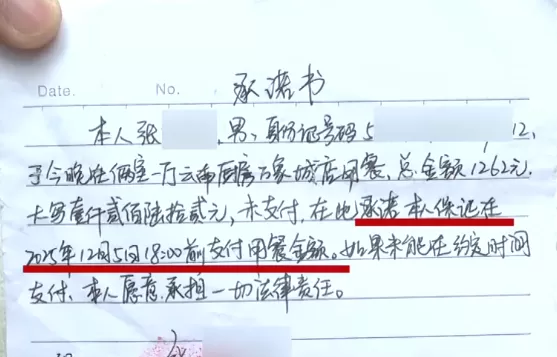 Date. No. 承诺书
本人张 ,男,身份证号码5 12,
于今晚在俩室一厅云南厨房万象城店用餐、总金额1262元.
大写壹仟贰佰陆拾贰元,未支付,在此承诺本人保证在
2025年12月5日18:00前支付用餐金额。如果未能在约定时间
支付、本人愿意承担一切法律责任。